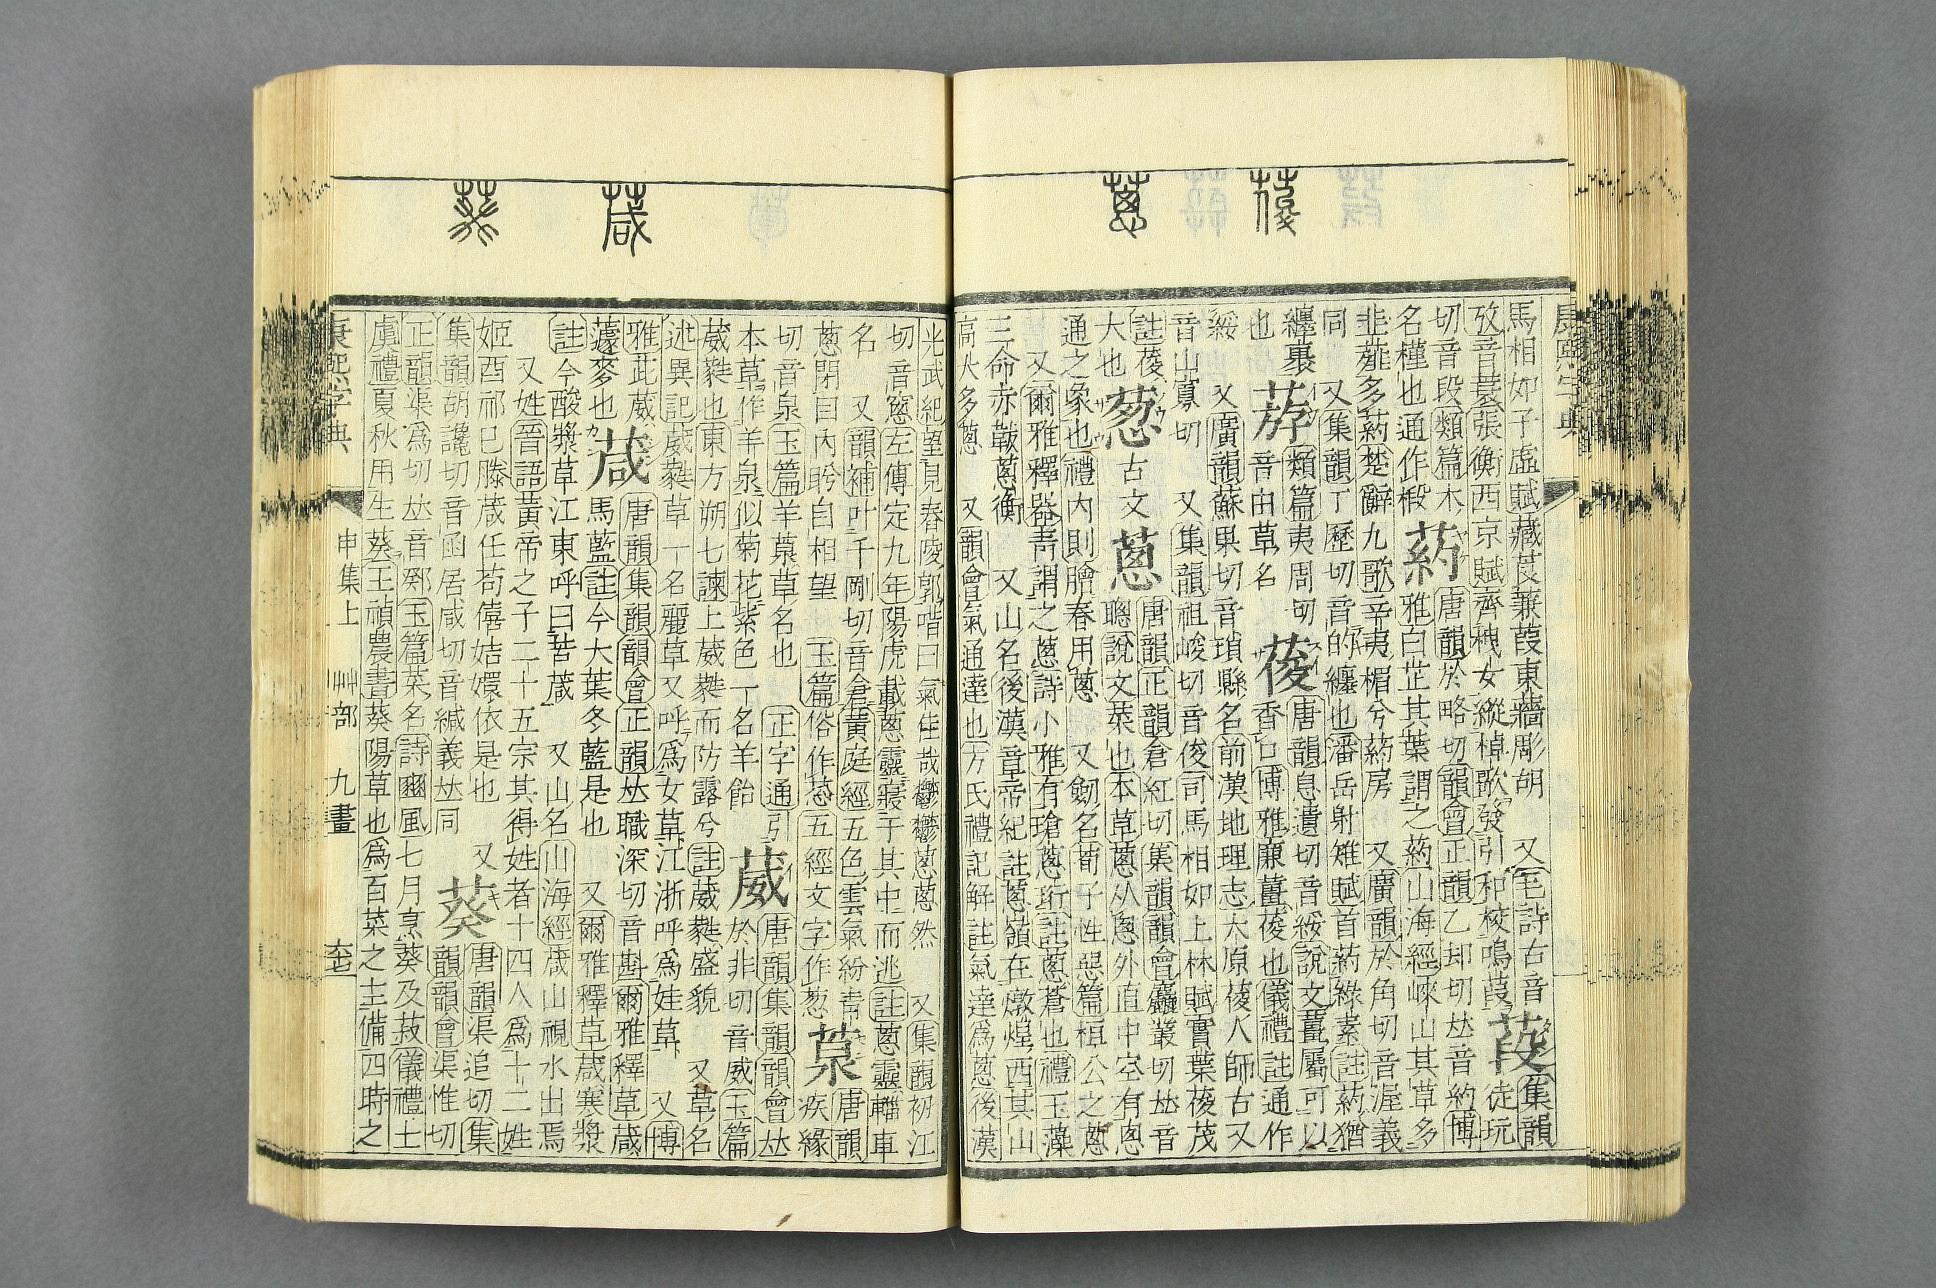 馬相如子虛賦藏莨蒹葭東蘠彫胡　又毛詩古音
攷音張衡西京賦齊栧女縱棹歌發引和校鳴葭葮集韻徒玩
切音段類篇木
名槿也通作椴葯唐韻於略切韻會正韻乙却切𠀤音約博
雅白芷其葉謂之葯山海經崍山其草多
韭薤多葯楚辭九歌辛夷楣兮葯房　又廣韻於角切音渥義
同　又集韻丁歷切音的纏也潘岳射雉賦首葯綠素註葯猶
纏裹
也　類篇夷周切
音由草名葰唐韻息遺切音綏說文薑屬可以
香口博雅廉薑葰也儀禮註通作
綏　又廣韻蘇果切音瑣縣名前漢地理志太原葰人師古又
音山寡切　又集韻祖峻切音俊司馬相如上林賦實葉葰茂
註葰
大也葱古文蔥唐韻正韻倉紅切集韻韻會麤叢切𠀤音
聰說文菜也本草蔥从悤外直中空有悤
通之象也禮內則膾春用蔥　又劒名荀子性惡篇桓公之蔥
又爾雅釋器靑謂之蔥詩小雅有瑲蔥珩註蔥蒼也禮玉藻
三命赤韍蔥衡　又山名後漢章帝紀註蔥嶺在燉煌西其山
高大多蔥　又韻會氣通達也方氏禮記解註氣達爲蔥後漢
光武紀望見舂陵郭唶曰氣佳哉鬱鬱蔥蔥然　又集韻初江
切音窻左傳定九年陽虎載蔥靈寢于其中而逃註蔥靈輜車
名　又韻補叶千剛切音倉黃庭經五色雲氣紛靑
蔥閉目內眄自相望　玉篇俗作葱五經文字作葱葲唐韻疾緣
切音泉玉篇羊葲草名也　正字通引
本草作羊泉似菊花紫色一名羊飴葳唐韻集韻韻會𠀤
於非切音威玉篇
葳蕤也東方朔七諫上葳蕤而防露兮註葳蕤盛貌　又草名
述異記葳蕤草一名麗草又呼爲女草江浙呼爲娃草　又博
雅茈葳
蘧麥也葴唐韻集韻韻會正韻𠀤職深切音斟爾雅釋草葴寒漿
馬藍註今大葉冬藍是也　又爾雅釋草葴
註今酸漿草江東呼曰苦葴　又山名山海經葴山視水出焉
又姓晉語黃帝之子二十五宗其得姓者十四人爲十二姓
姬酉祁己滕葴任荀僖姞嬛依是也　又
集韻胡讒切音函居咸切音緘義𠀤同葵唐韻渠追切集
韻韻會渠惟切
正韻渠爲切𠀤音鄈玉篇菜名詩豳風七月烹葵及菽儀禮士
虞禮夏秋用生葵王禎農書葵陽草也爲百菜之主備四時之
康熙字典　申集上　艸部　九畫